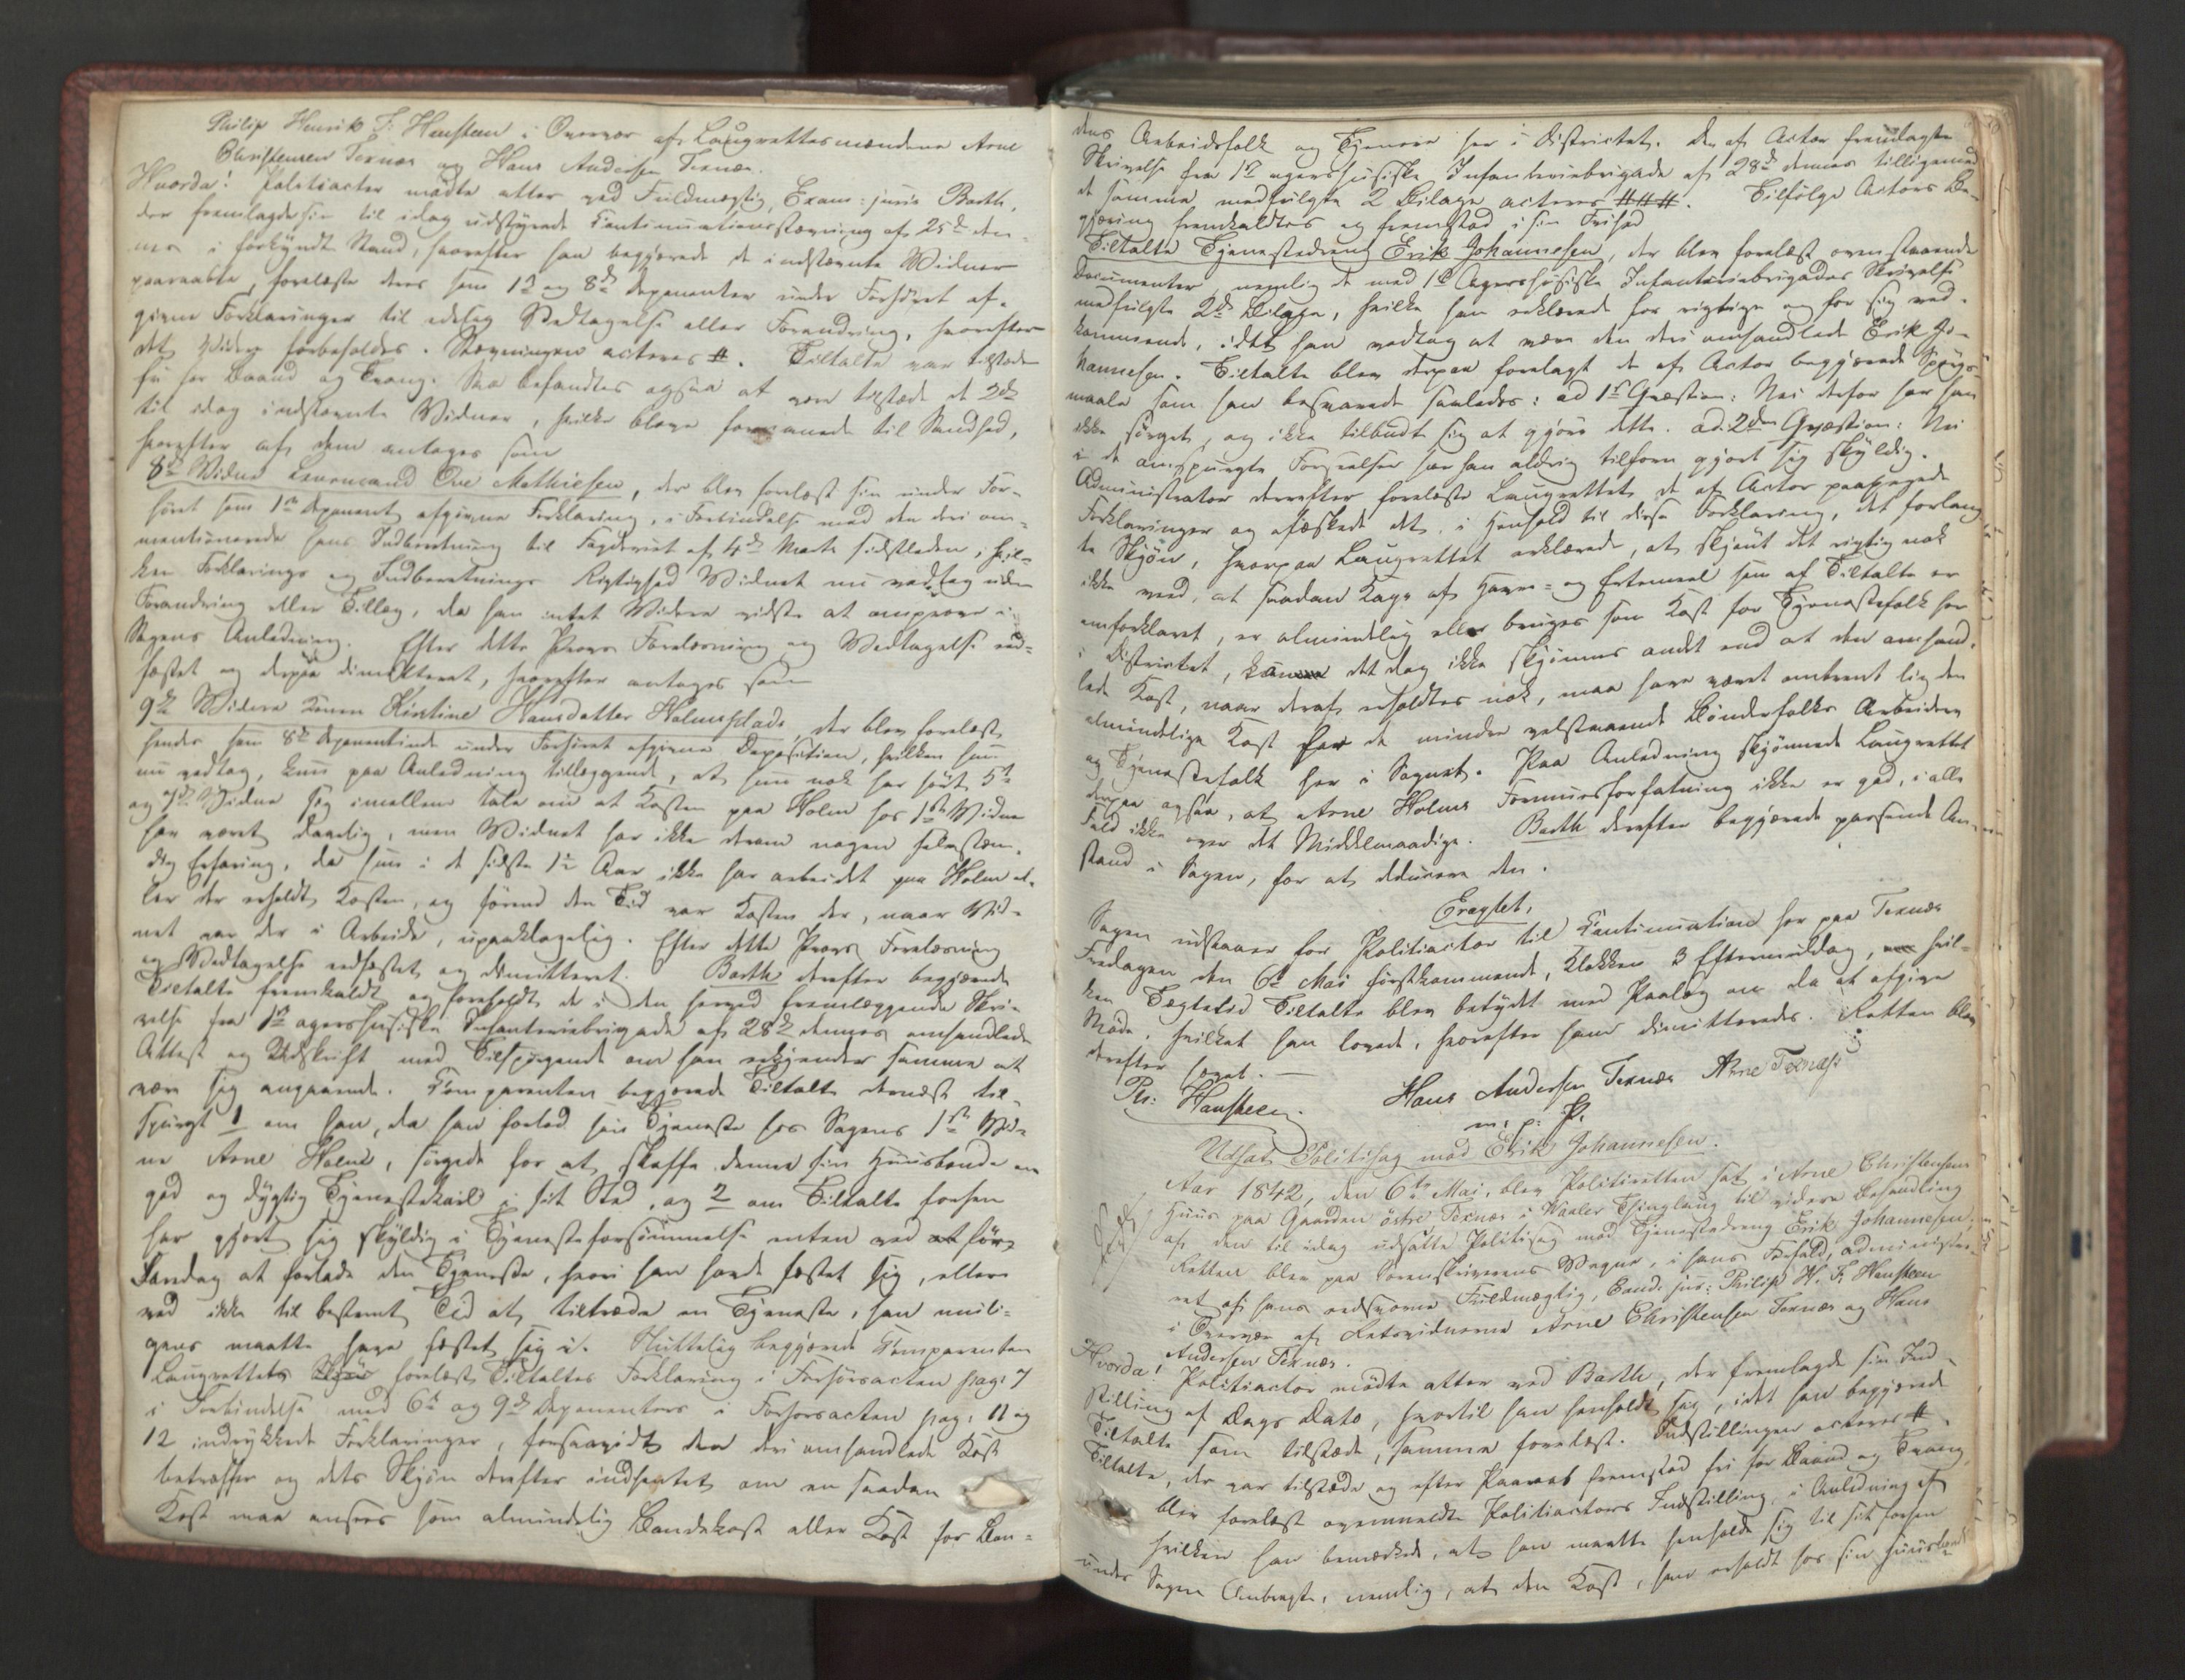 Philip Henrik F. Hansteen i Overvær af Laugrettesmændene Arne
Christensen Texnæs og Hans Andersen Texnæs.
Hvorda! Politiactor mødte atter ved Fuldmægtig, Exam: juris Barth,
der fremlagde sin til idag udstyrede Continuationsstævning af 25de den-
nes i forkyndt Stand, hvorefter han begjærede de indstævnte Vidner
paaraabte, forelæste deres som 1ste og 8de Deponenter under Forhøret af-
givne Forklaringer til edelig Vedtagelse eller Forandring, hvorefter
det videre forbeholdes. Stævningen acteres #. Tiltalte var tilstæde
fri for Baand og Tvang. Saa befandtes ogsaa at være tilstæde de 2de
til idag indstævnte Vidner, hvilke bleve formanede til Sandhed,
hvorefter af dem antoges som
8de Vidne Lensmand Ove Mathiesen, der blev forelæst sin under For-
høret som 1ste Deponent afgivne Forklaring, i Forbindelse med den deri om-
mentionerede hans Indberetning til Fogderiet af 4de Marts sidstleden, hvil-
ken Forklarings og Indberetnings Rigtighed Vidnet nu vedtog uden
Forandring eller Tillæg, da han intet Videre vidste at omprove i
Sagens Anledning. Efter dette Provs Forelæsning og Vedtagelse ed-
fæstet og derpaa dimitteret, hvorefter antoges som
9de Vidne Konen Kirstine Hansdatter Holmsplads, der blev forelæst
hendes som 8de Deponentinde under Forhøret afgivne Deposition, hvilken hun
nu vedtog, kun paa Anledning tillæggende, at hun nok har hørt 5te
og 7de Vidne sig imellem tale om at Kosten paa Holm hos 1ste Vidne
har været daarlig, men Vidnet har ikke derom nogen selvstæn-
dig Erfaring, da hun i de sidste 1½ Aar ikke har arbeidet paa Holm el-
ler der erholdt Kosten, og førend den Tid var Kosten der, naar Vid-
net var der i Arbeide, upaaklagelig. Efter dette Provs Forelæsning
og Vedtagelse edfæstet og dimitteret. Barth derefter begjærede
Tiltalte fremkaldt og foreholdt de i den herved fremlæggende Skri-
velse fra 1ste agershusiske Infanteriebrigade af 28de dennes omhandlede
Attest og Udskrift med Tilspørgende om han erkjender samme at
være sig angaaende. Comparenten begjærede Tiltalte dernæst til-
spurgt 1 om han, da han forlod sin Tjeneste hos Sagens 1ste Vid-
ne Arne Holm, sørgede for at skaffe denne sin Huusbonde en
god og dygtig Tjenestekarl i sit Sted, og 2 om Tiltalte forhen
har gjort sig skyldig i Tjenesteforsømmelse enten ved at før
Faredag at forlade den Tjeneste, hvori han havde fæstet sig, eller
ved ikke til bestemt Tid at tiltræde en Tjeneste, han muli-
gens maatte have fæstet sig i. Sluttelig begjærede Comparenten
Laugrettets Skjøn forelæst Tiltaltes Forklaring i Forhørsacten pag: 7
i Forbindelse med 6te og 9de Deponenters i Forhørsacten pag: 11 og
12 indrykkede Forklaringer, forsaavidt den deri omhandlede Kost
betræffer og dets Skjøn derefter indhentet om en saadan
Kost maa ansees som almindelig Bondekost eller Kost for Bøn-
ders Arbeidsfolk og Tjenere her i Districtet. Den af Actor fremlagte
Skrivelse fra 1ste agershusiske Infanteriebrigade af 28de dennes tilligemed
de samme medfulgte 2 Bilage acteres ###. Tilfølge Actors Be-
gjæring fremkaldtes og fremstod i sin Frihed
Tiltalte Tjenestedreng Erik Johannesen, der blev forelæst ovenstaaende
Documenter nemlig de med 1ste Agershusiske Infanteriebrigades Skrivelse
medfulgte 2de Bilage, hvilke han erklærede for rigtige og for sig ved-
kommende, idet han vedtog at være den deri omhandlede Erik Jo-
hannesen. Tiltalte blev derpaa forelagt de af Actor begjærede Spørgs-
maale som han besvarede saaledes: ad 1ste Qvæstion: Nei derfor har han
ikke sørget, og ikke tilbudt sig at gjøre dette. ad 2den Qvæstion: Nei
i de omspurgte Forseelser har han aldrig tilforn gjort sig skyldig.
Administrator derefter forelæste Laugrettet de af Actor paapegede
Forklaringer og afæskede det, i Henhold til disse Forklaring, det forlang-
te Skjøn, hvorpaa Laugrettet erklærede, at skjønt det rigtig nok
ikke veed, at saadan Kage af Havre- og Ertemeel som af Tiltalte er
omforklaret, er almindelig eller bruges som Kost for Tjenestefolk her
i Districtet, kan det dog ikke skjønnes andet end at den omhand-
lede Kost, naar deraf erholdtes nok, maa have været omtrent lig den
almindelige Kost for de mindre velstaaende Bønderfolks Arbeidere
og Tjenestefolk her i Sognet. Paa Anledning skjønnede Laugrettet
derpaa ogsaa, at Arne Holms Formuesforfatning ikke er god, i alle
Fald ikke over det Middelmaadige. Barth derefter begjærede passende An-
stand i Sagen, for at deducere den.
Eragtet,
Sagen udstaaer for Politiactor til Continuation her paa Texnæs
Fredagen den 6te Mai førstkommende, Klokken 3 Eftermiddag, hvil-
ken Tægtetid Tiltalte blev betydet med Paalæg om da at afgive
Møde, hvilket han lovede, hvorefter han dimitteredes. Retten blev
derefter hævet. —
Ph: Hansteen. Hans Andersen Texnæs Arne Texnæs
m. p. P.
Udsat Politisag mod Erik Johannesen.
Aar 1842, den 6te Mai, blev Politiretten sat i Arne Christensens
Huus paa Gaarden østre Texnæs i Vaaler Thinglaug til videre Behandling
af den til idag udsatte Politisag mod Tjenestedreng Erik Johannesen.
Retten blev paa Sorenskriverens Vegne, i hans Forfald, administre-
ret af hans edsvorne Fuldmægtig, Cand: jur: Philip H. F. Hansteen
i Overvær af Retsvidnerne Arne Christensen Texnæs og Hans
Andersen Texnæs.
Hvorda! Politiactor mødte atter ved Barth, der fremlagde sin Ind-
stilling af Dags Dato, hvortil han henholdt sig, idet han begjærede
Tiltalte som tilstæde, samme forelæst. Indstillingen acteres #.
Tiltalte, der var tilstæde og efter Paaraab fremstod fri for Baand og Tvang,
blev forelæst ovenmeldte Politiactors Indstilling, i Anledning af
hvilken han bemærkede, at han maatte henholde sig til sit forhen
under Sagen Anbragte, nemlig, at den Kost, han erholdt hos sin Huusbond